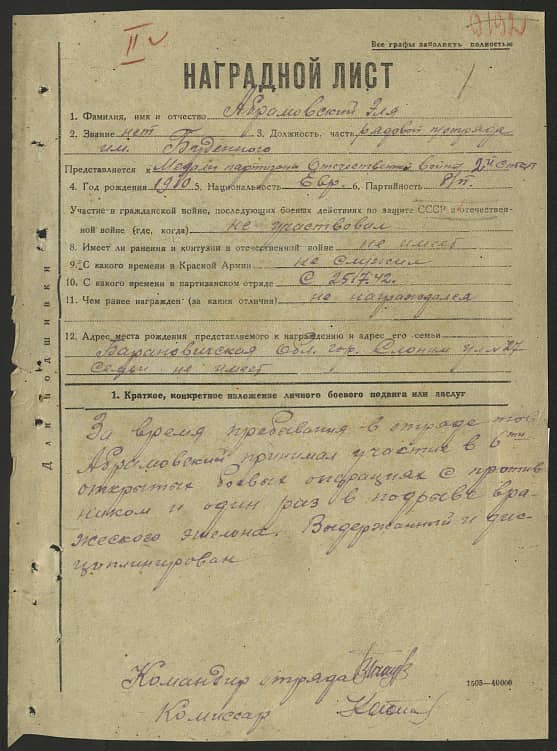 II
9192
Все графы заполнять полностью
НАГРАДНОЙ ЛИСТ
1. Фамилия, имя и отчество Абрамовский Эля
2. Звание нет 3. Должность, часть рядовой п/отряда
им. Буденного
Представляется к Медали партизану Отечественной войны 2й степ
4. Год рождения 1910 5. Национальность Евр. 6. Партийность б/п.
Участие в гражданской войне, последующих боевых действиях по защите СССР и отечествен-
ной войне (где, когда) не участвовал
8. Имеет ли ранения и контузии в отечественной войне не имеет
9. С какого времени в Красной Армии не служил
10. С какого времени в партизанском отряде С 25/7.42.
11. Чем ранее награжден (за какия отличия) не награждался
12. Адрес места рождения представляемого к награждению и адрес его семьи
Барановичская Обл. гор. Слоним ул
Семьи не имеет
Для подшивки
1. Краткое, конкретное изложение личного боевого подвига или заслуг
За время пребывания в отряде тов
Абрамовский принимал участие в 6ти
открытых боевых операциях с против
ником и один раз в подрыве вра-
жеского эшелона. Выдержанный и дис-
циплинирован
Командир отряда
Комиссар
1505—40000